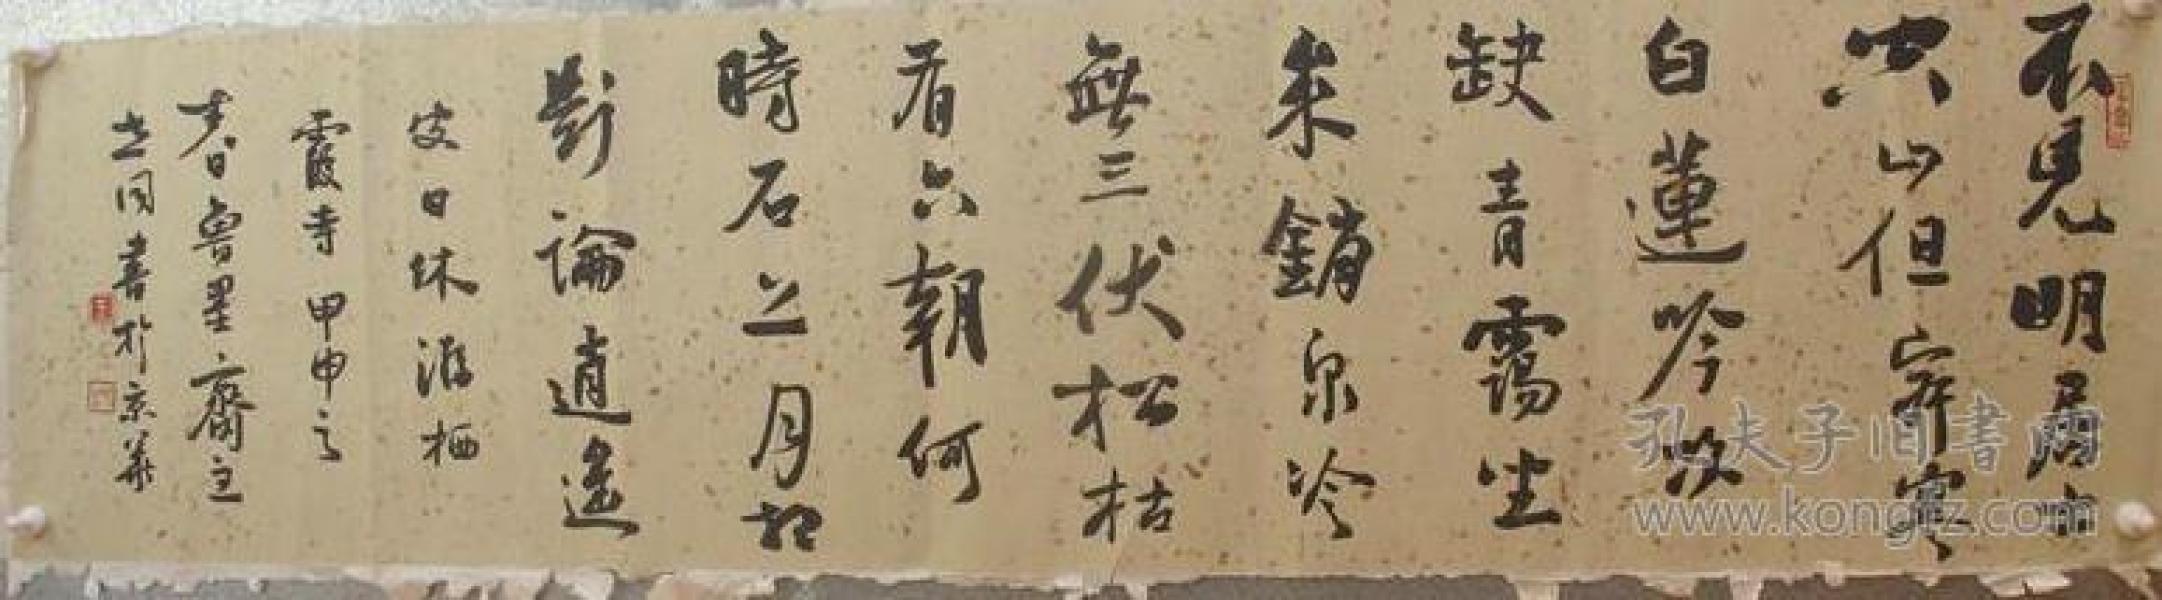 不見明居士
空山但寂寥
白蓮吟次
缺青靄坐
來銷泉冷
無三伏松枯
有六朝何
時石上月相
對論逍遙
皮日休游栖
霞寺甲申之
春魯墨齋主
志同書於京華
孔夫子旧書网
www.kongfz.com